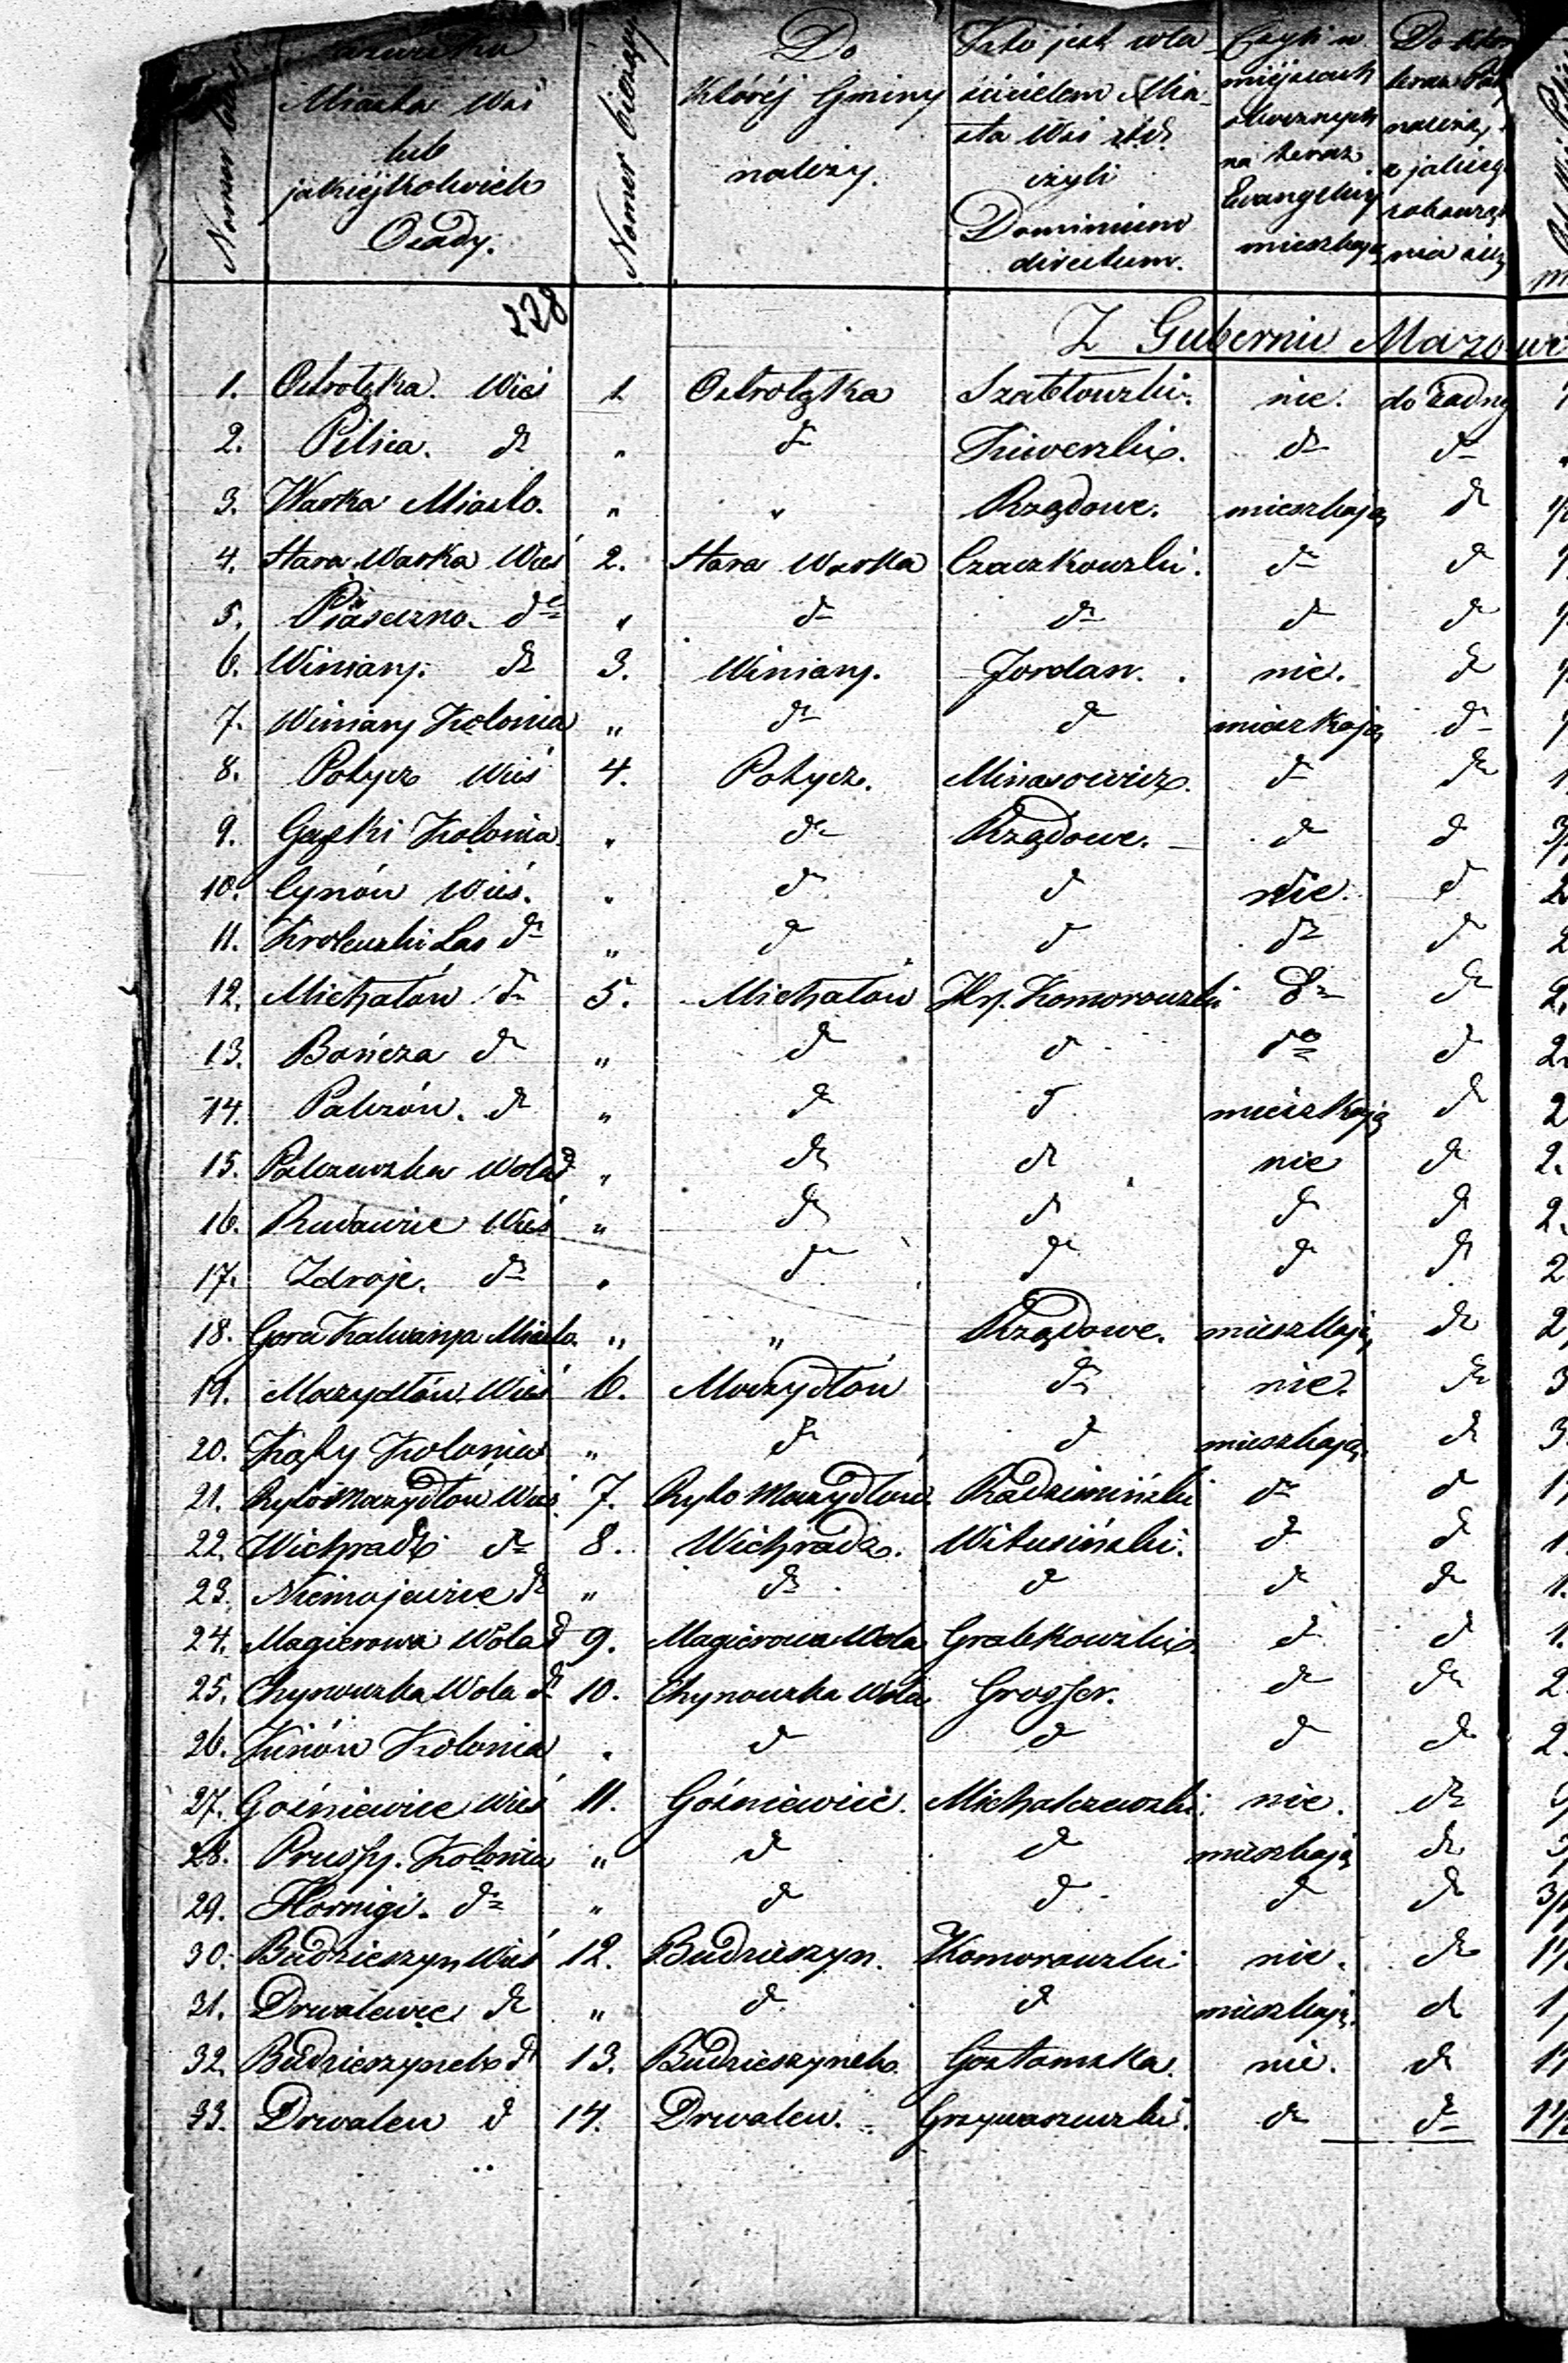 Miasta Wsi
lub
jakiéjkolwiek
Osady.
Numer bieżący
Do
któréj Gminy
należy.
Kto jest wła-
ścicielem Mia-
sta Wsi
czyli
Dominium
directum.
Czyli w
miejscach
na teraz
Evangelicy
mieszkają
Do któr
teraz
należą,
z jakiég
nia się
228
Z Gubernii Mazow
1. Ostrołęka. Wieś 1 Ostrołęka Szabłowski. nie. do żadnéj
2. Pilica. dto „ dto dto dto
3. Warka Miasto. „ „ Rządowe. mieszkają dto
4. Stara Warka Wieś 2. Stara Warka Czaczkowski. dto dto
5. Piaseczno dto „ dto dto dto dto
6. Winiary. dto 3. Winiary. Jordan. nie. dto
7. Winiary Kolonia „ dto dto mieszkają dto
8. Potycz Wieś 4. Potycz. Minasowicz. dto dto
9. Kolonia „ dto Rządowe. dto dto
10. Cynów Wieś. „ dto dto nie. dto
11. Krolewski Las dto „ dto dto dto dto
12. Michałów dto 5. Michałów Hr. Komorowski dto dto
13. Bończa dto „ dto dto dto dto
14. Palczów. dto „ dto dto mieszkają dto
15. Palczewska Wola dto „ dto dto nie dto
16. Wieś „ dto dto dto dto
17. Zdroje. dto „ dto dto dto dto
18. Gora Kalwarya Miasto. „ „ Rządowe. mieszkają dto
19. Moczydłów Wieś 6. Moczydłów dto nie. dto
20. Kąty Kolonia „ dto dto mieszkają dto
21. Ryto Moczydłów Wieś 7. Ryto Moczydłów Radzimiński dto dto
22. Wichradz dto 8. Wichradz. Witusiński. dto dto
23. Niemojewice dto „ dto dto dto dto
24. Magierowa Wola dto 9. Magierowa Wola Grabkowski dto dto
25. Chynowska Wola dto 10. Chynowska Wola Grosser. dto dto
26. Kolonia „ dto dto dto dto
27. Goźniewice Wieś 11. Góźniewice. Michalczewski. nie. dto
28. Prussy. Kolonia „ dto dto mieszkają dto
29. Hornigi. dto „ dto dto dto dto
30. Budzieszyn Wieś 12. Budzieszyn. Komorowski nie. dto
31. Drwalewice dto „ dto dto mieszkają. dto
32. Budzieszynek dto 13. Budzieszynek. Gostomska. nie. dto
33. Drwalew dto 14. Drwalew. Grzywaszewski. dto dto